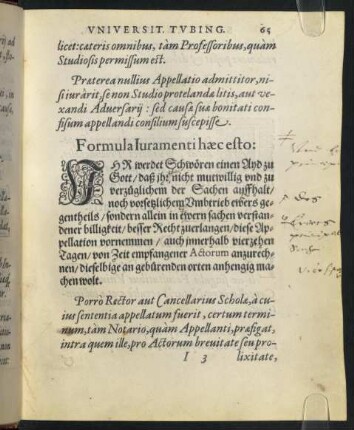 VNIVERSIT. TVBING. 65
licet: cæteris omnibus, tàm Professoribus, quàm
Studiosis permissum est.
Præterea nullius Appellatio admittitor, ni-
si iurârit, se non Studio protelandæ litis, aut ve-
xandi Aduersarij: sed causæ suæ bonitati con-
fisum appellandi consilium suscepisse.
Formula Iuramenti hæc esto:
IHR werdet Schwören einen Ayd zu
Gott / daß ihr nicht mutwillig vnd zu
verzüglichem der Sachen auffhalt /
noch vorsetzlichem Vmbtrieb ewers ge-
gentheils / sondern allein in ewern sachen verstan-
dener billigkeit / besser Recht zuerlangen / diese Ap-
pellation vornemmen / auch innerhalb vierzehen
Tagen / von Zeit empfangener Actorum anzurech-
nen / dieselbige an gebürenden orten anhengig ma-
chen wolt.
Porrò Rector aut Cancellarius Scholæ, à cu-
ius sententia appellatum fuerit, certum termi-
num, tàm Notario, quàm Appellanti, præfigat,
intra quem ille, pro Actorum breuitate seu pro-
I 3 lixitate,